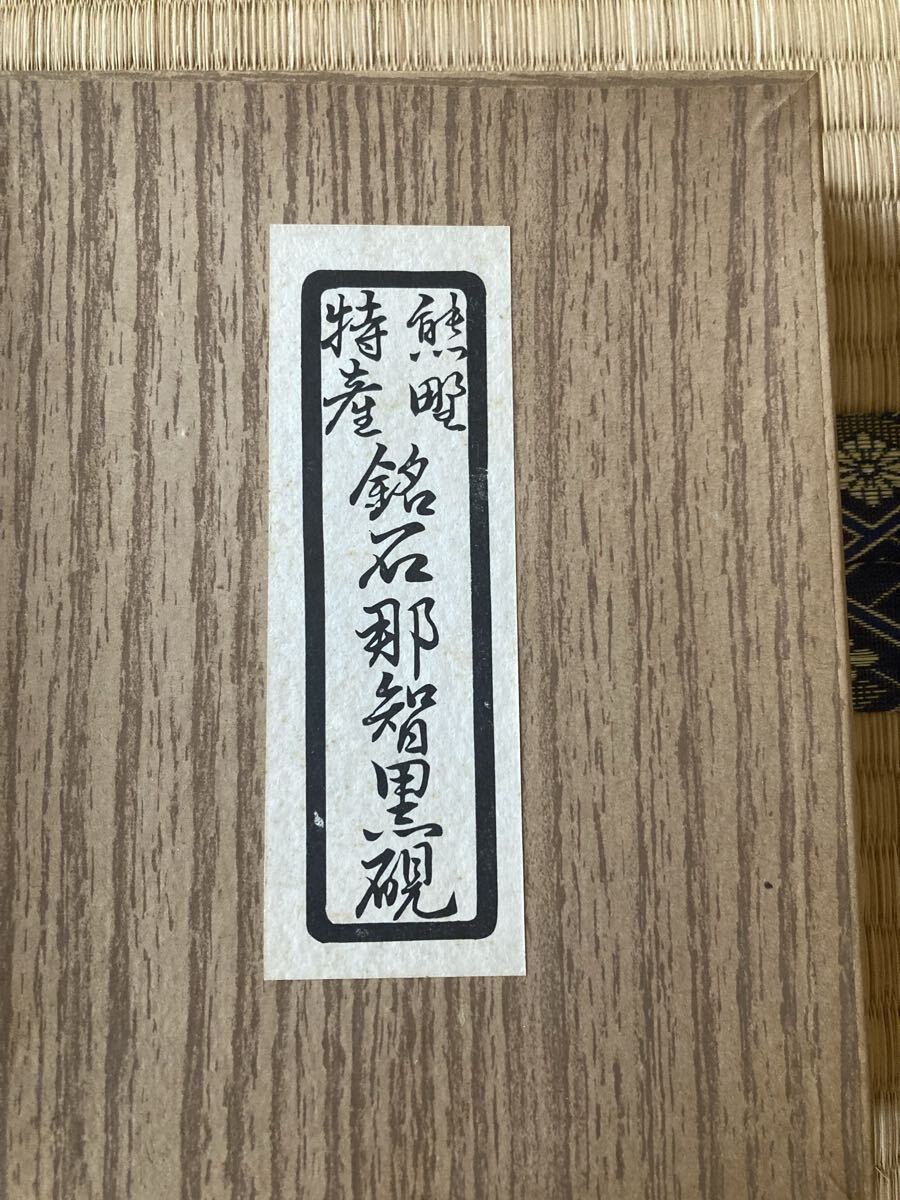 熊野
特産
銘石那智黒硯